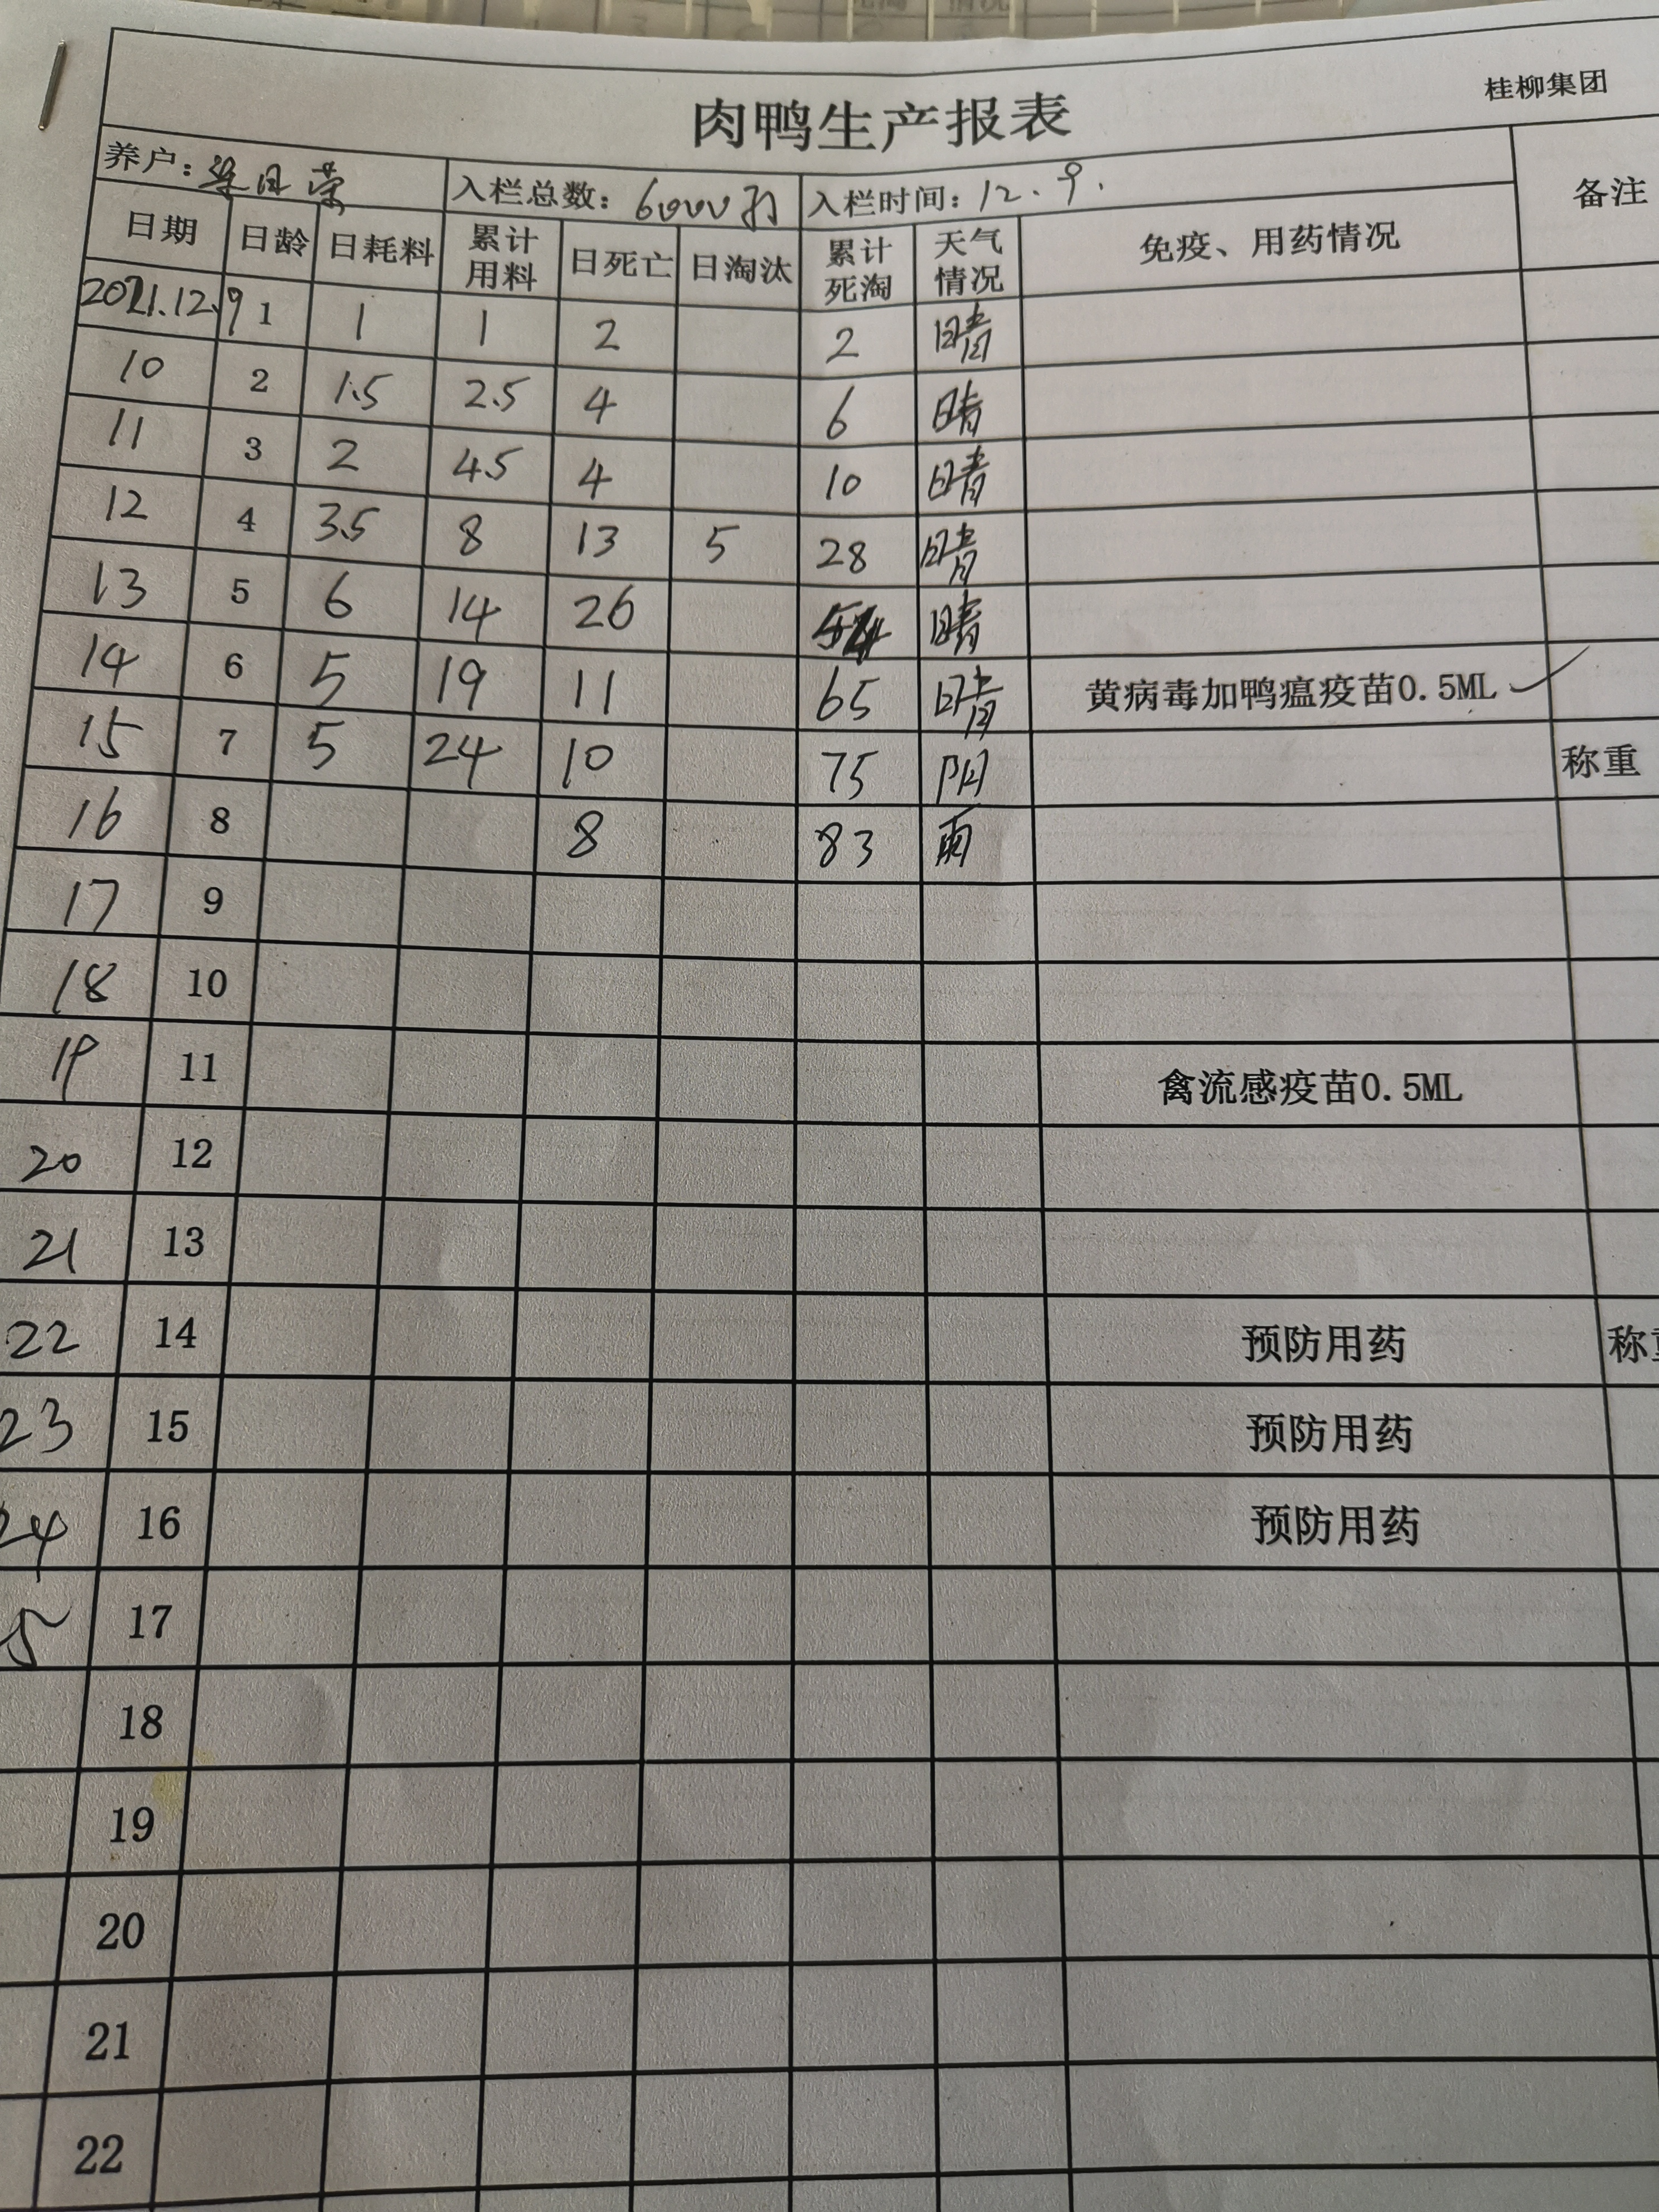 桂柳集团
肉鸭生产报表
养户：梁日荣 入栏总数：6000羽 入栏时间：12.9. 备注
日期 日龄 日耗料 累计用料 日死亡 日淘汰 累计死淘 天气情况 免疫、用药情况
2021.12.9 1 1 1 2 2 晴
10 2 1.5 2.5 4 6 晴
11 3 2 4.5 4 10 晴
12 4 3.5 8 13 5 28 晴
13 5 6 14 26 54 晴
14 6 5 19 11 65 晴 黄病毒加鸭瘟疫苗0.5ML ✓
15 7 5 24 10 75 阴 称重
16 8 8 83 雨
17 9
18 10
19 11 禽流感疫苗0.5ML
20 12
21 13
22 14 预防用药 称重
23 15 预防用药
24 16 预防用药
5 17
18
19
20
21
22